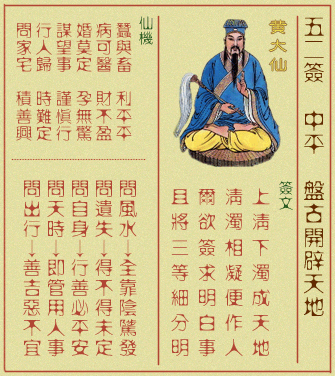 五二簽 中平 盤古開辟天地
黃大仙
簽文
上清下濁成天地
清濁相凝便作人
爾欲簽求明白事
且將三等細分明
仙機
蠶與畜 利平平
病可醫 財不盈
婚莫定 孕無驚
謀望事 謹慎行
行人歸 時難定
問家宅 積善興
問風水→全靠陰騭發
問遺失→得不得未定
問自身→行善必平安
問天時→即管用人事
問出行→善吉惡不宜